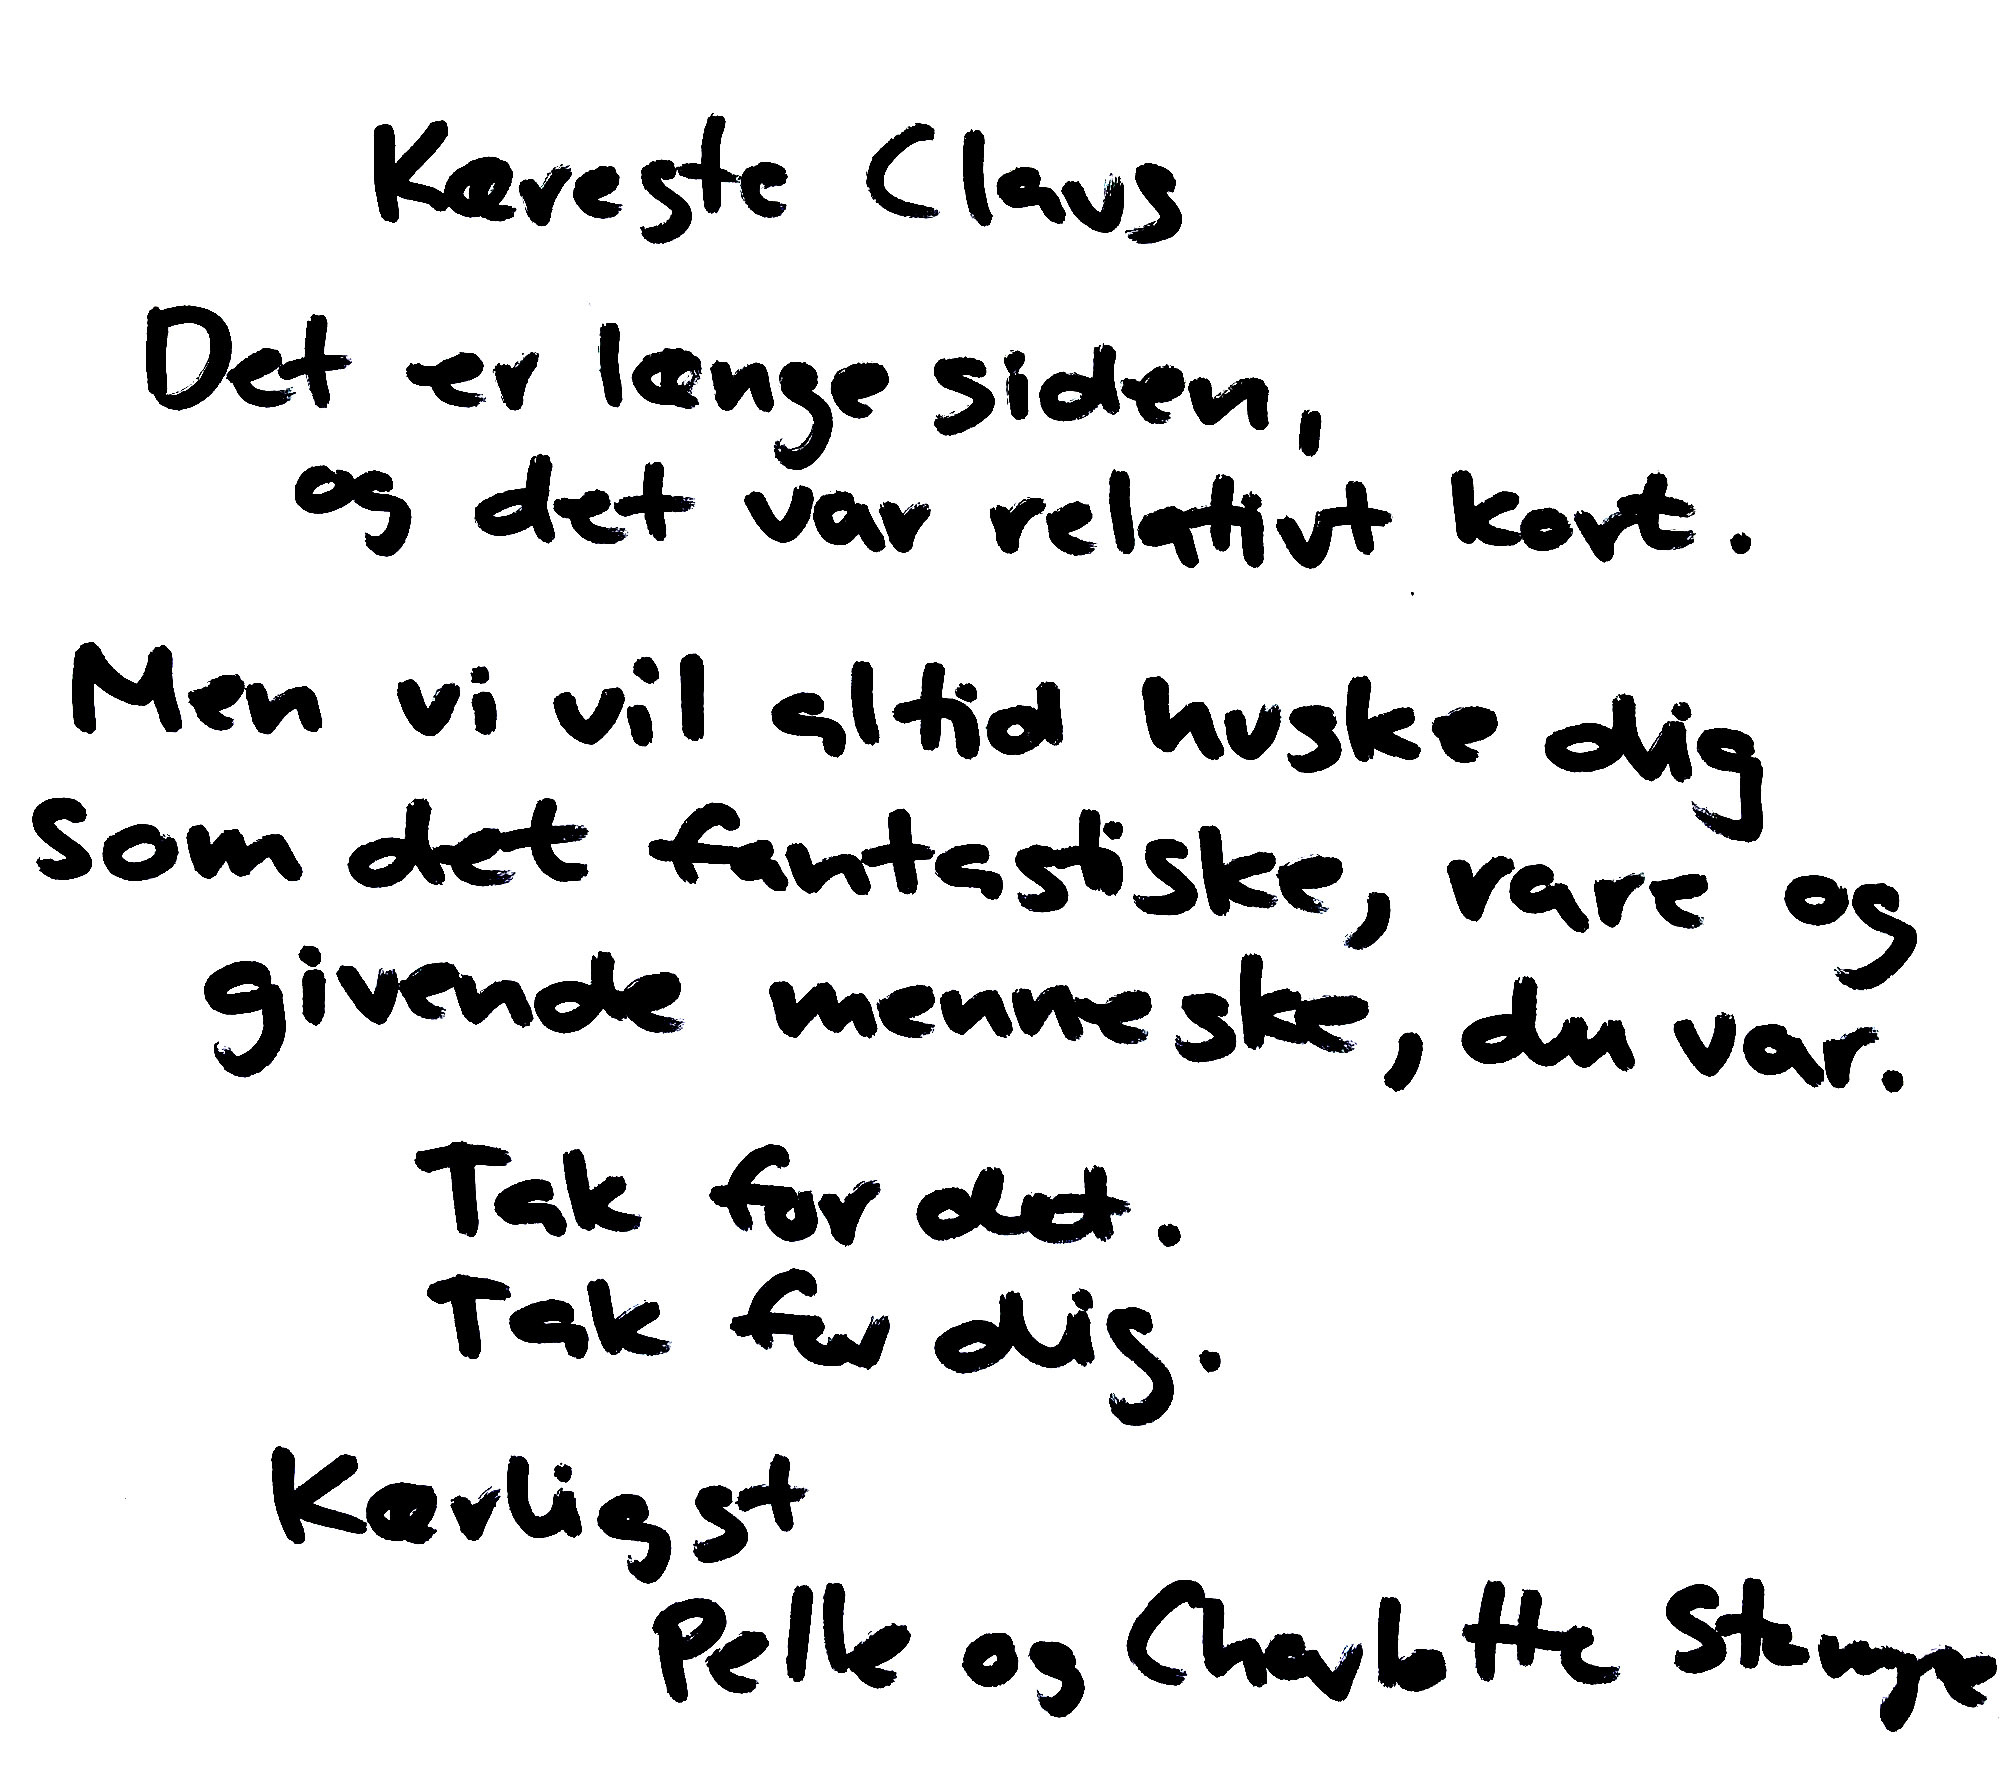 Kæreste Claus
Det er længe siden,
og det var relativt kort.
Men vi vil altid huske dig
som det fantastiske, rare og
givende menneske, du var.
Tak for det.
Tak for dig.
Kærligst
Pelle og Charlotte